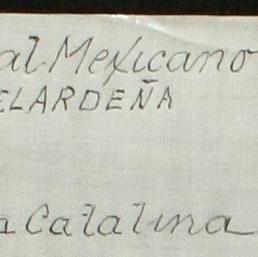 al Mexicano
ELARDEÑA
a Catalina